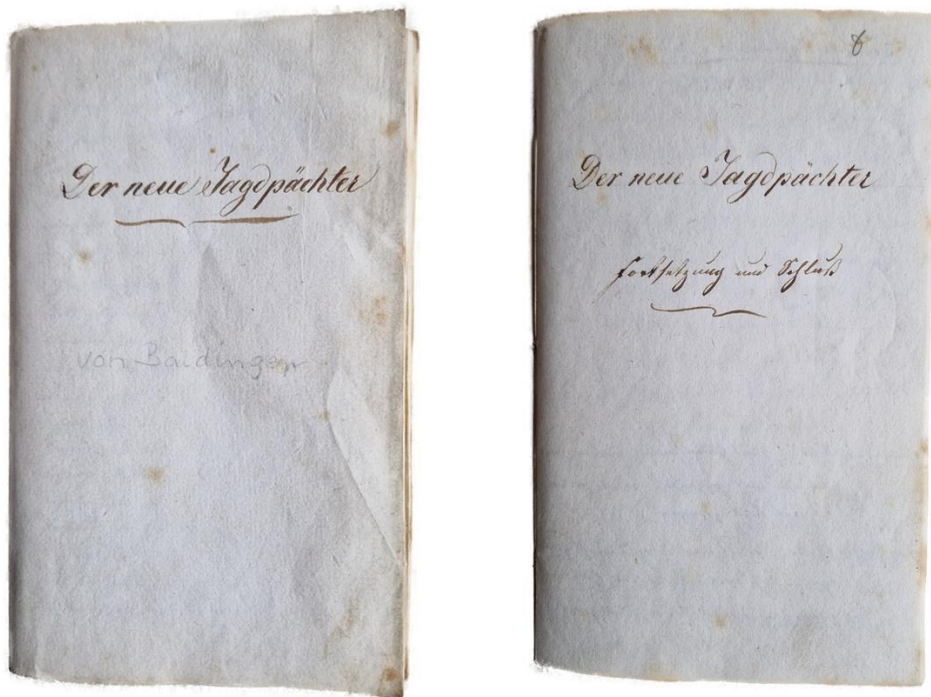 Der neue Jagdpächter
von Baldinger
8
Der neue Jagdpächter
Fortsetzung und Schluß